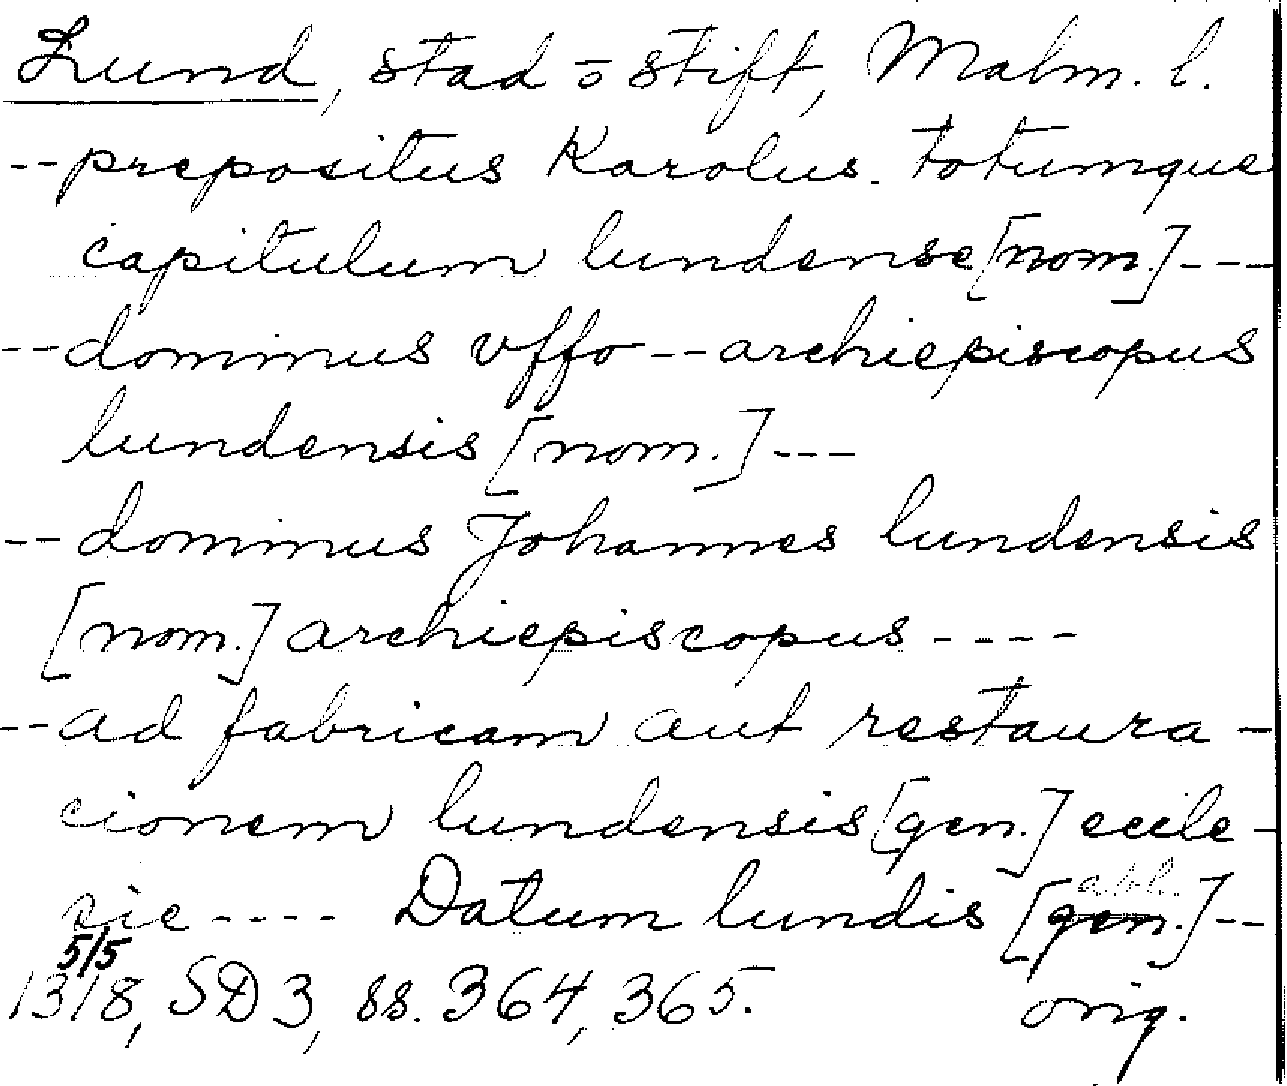 Lund, stad o stift, Malm. l.
-- prepositus Karolus. totumque
capitulum lundense [nom.] ---
-- dominus vffo -- archiepiscopus
lundensis [nom.] ---
-- dominus Johannes lundensis
[nom.] archiepiscopus ----
-- ad fabricam aut restaura-
cionem lundensis [gen.] eccle-
abl.
sie ---- Datum lundis [gen.] --
5/5
1318, SD 3, ss. 364, 365. orig.